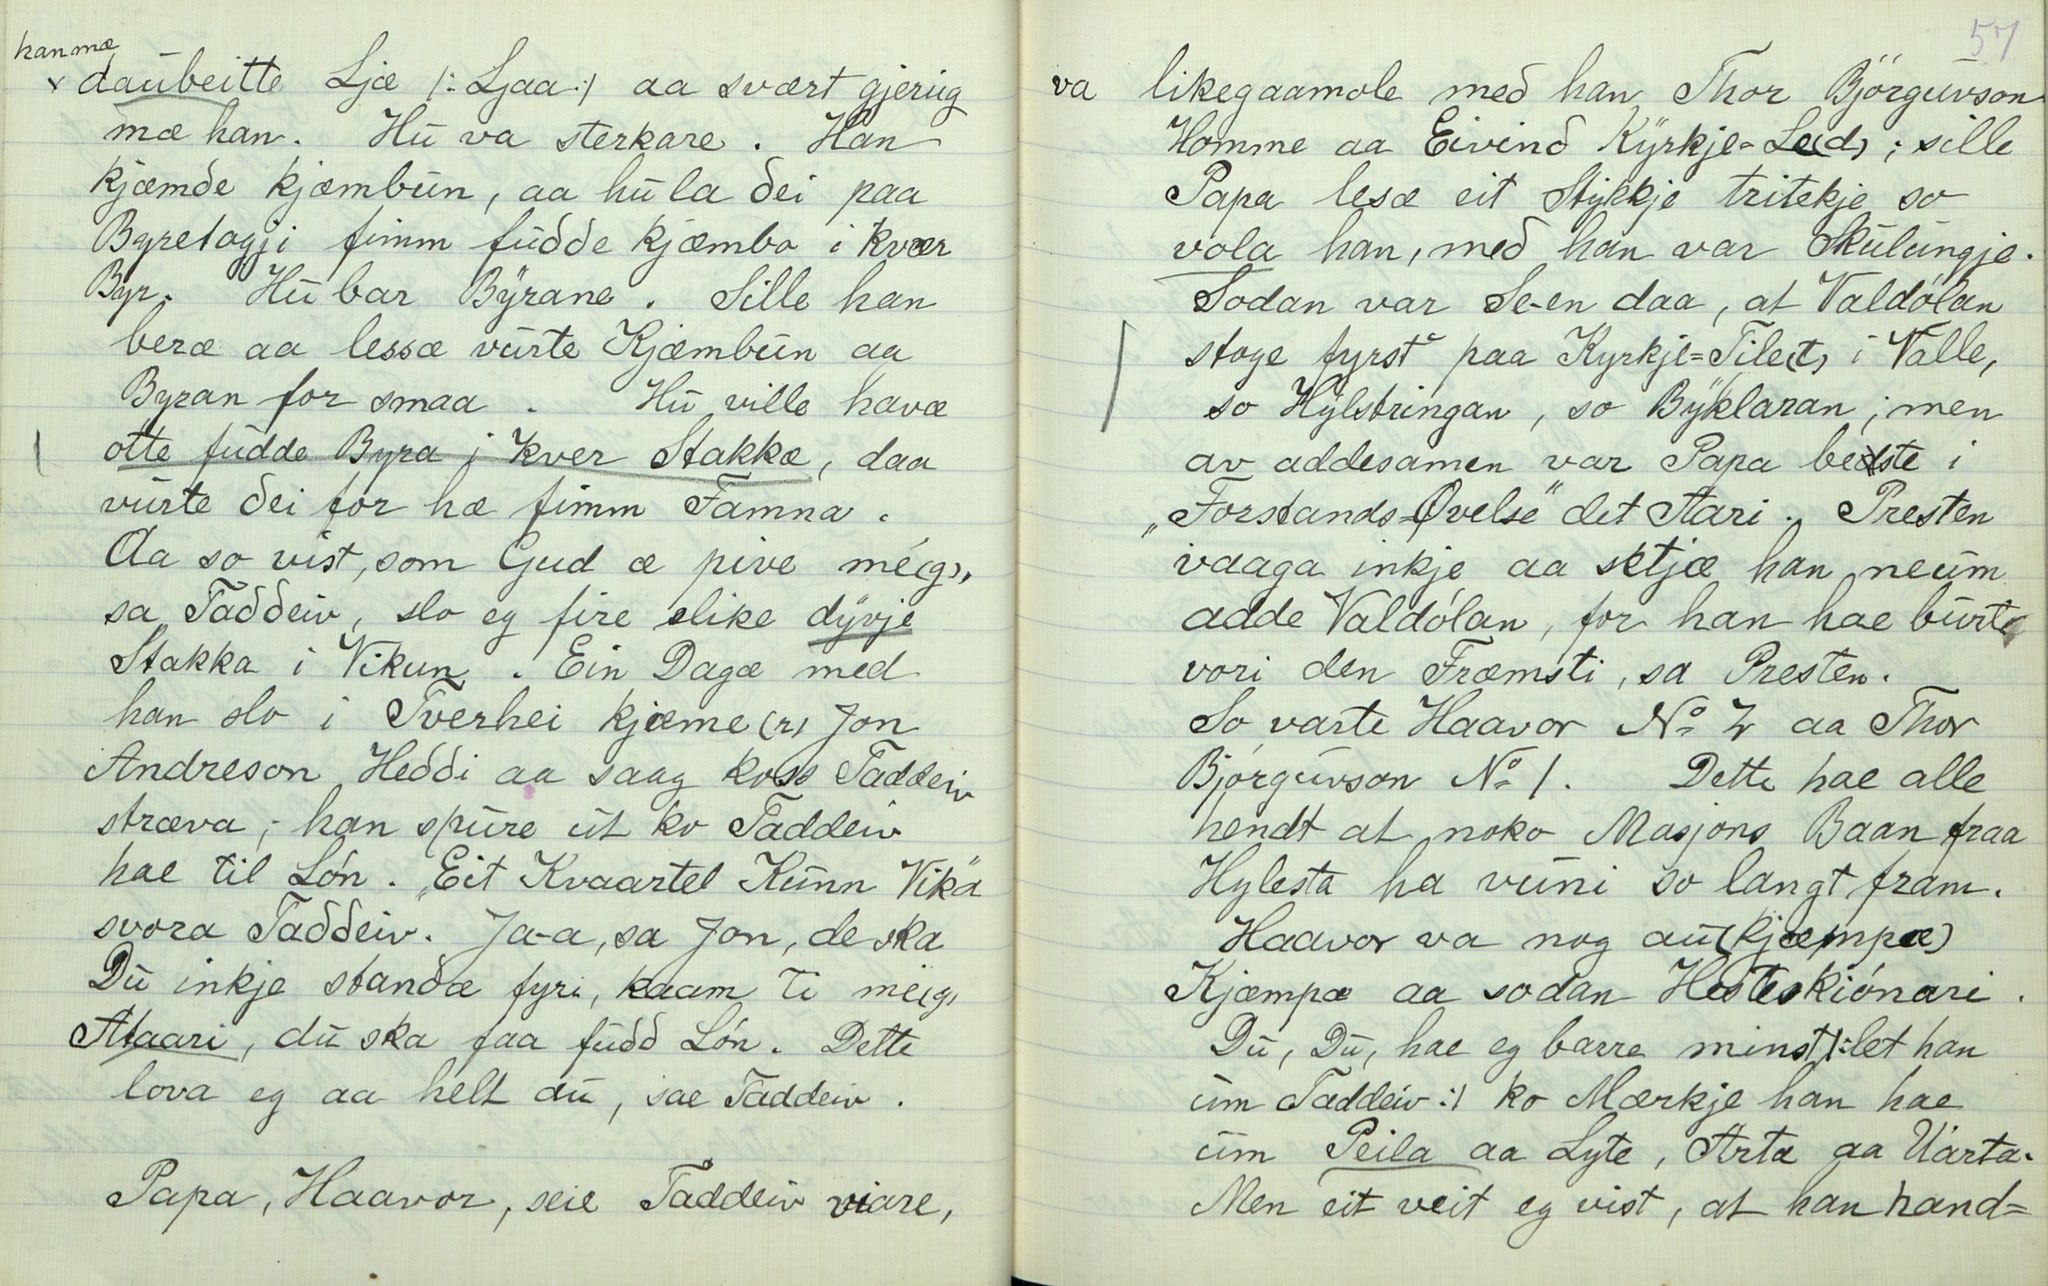 han mæ
x daubeitte Ljæ /: Ljaa :/ aa svært gjerug
mæ han. Hu va sterkare. Han
kjæmde kjæmbun, aa hu la ðei paa
Byretagji fimm fuððe kjæmbo i kvær
Byr. Hu bar Byrane. Sille han
beræ aa lessæ vurte Kjæmbun aa
Byran for smaa. Hu ville havæ
otte fudde Byra i kver Stakkæ, daa
vurte ðei for hæ fimm Famna.
Aa so vist, som Gud æ pive me(g),
sa Taððeiv, slo eg fire slike dyvje
Stakka i Vikun. Ein Dagæ med
han slo i Tverhei kjæme(r) Jon
Andreson Heðði aa saag koss Taddeiv
stræva; han spure ut ko Taddeiv
hae til Lón. "Eit Kvaartel Kunn Vikä
svora Taððeiv. Ja-a, sa Jon, de ska
Du inkje standæ fyri, kaam ti me(g)
Ataari, du ska faa fuðð Lón. Dette
lova eg aa helt du, sae Taddeiv.
Papa, Haavor, seie Taddeiv viare,
57
va likegaamole með han Thor Björguvson
Homme aa Eivinð Kyrkje-Le(d); sille
Papa lesæ eit Stykkje tritekje so
vola han, með han var Skulungje.
Sodan var Se-en daa, at Valdólan
stoge fyrst paa Kyrkje=Tile(t) i Valle,
so Hylstringan, so Byklaran; men
av addesamen var Papa bedste i
"Forstands-Øvelse" det Aari. Presten
vaaga inkje aa sktjæ han neum
adde Valdólan, for han hae burte
vori den Fræmsti, sa Presten.
So varte Haavor No 2 aa Thor
Bjórguvson No 1. Dette hae alle
hendt at noko Masjons Baan fraa
Hylesta ha vuni so langt fram.
Haavor va nog au (kjæmpæ)
Kjæmpæ aa sodan Hesteskiónari.
Du, Du, hae eg barre minst /: let han
um Taddeiv :/ ko Mærkje han hae
um Peila aa Lyte, Arta aa Uarta.
Men eit veit eg vist, at han hand=